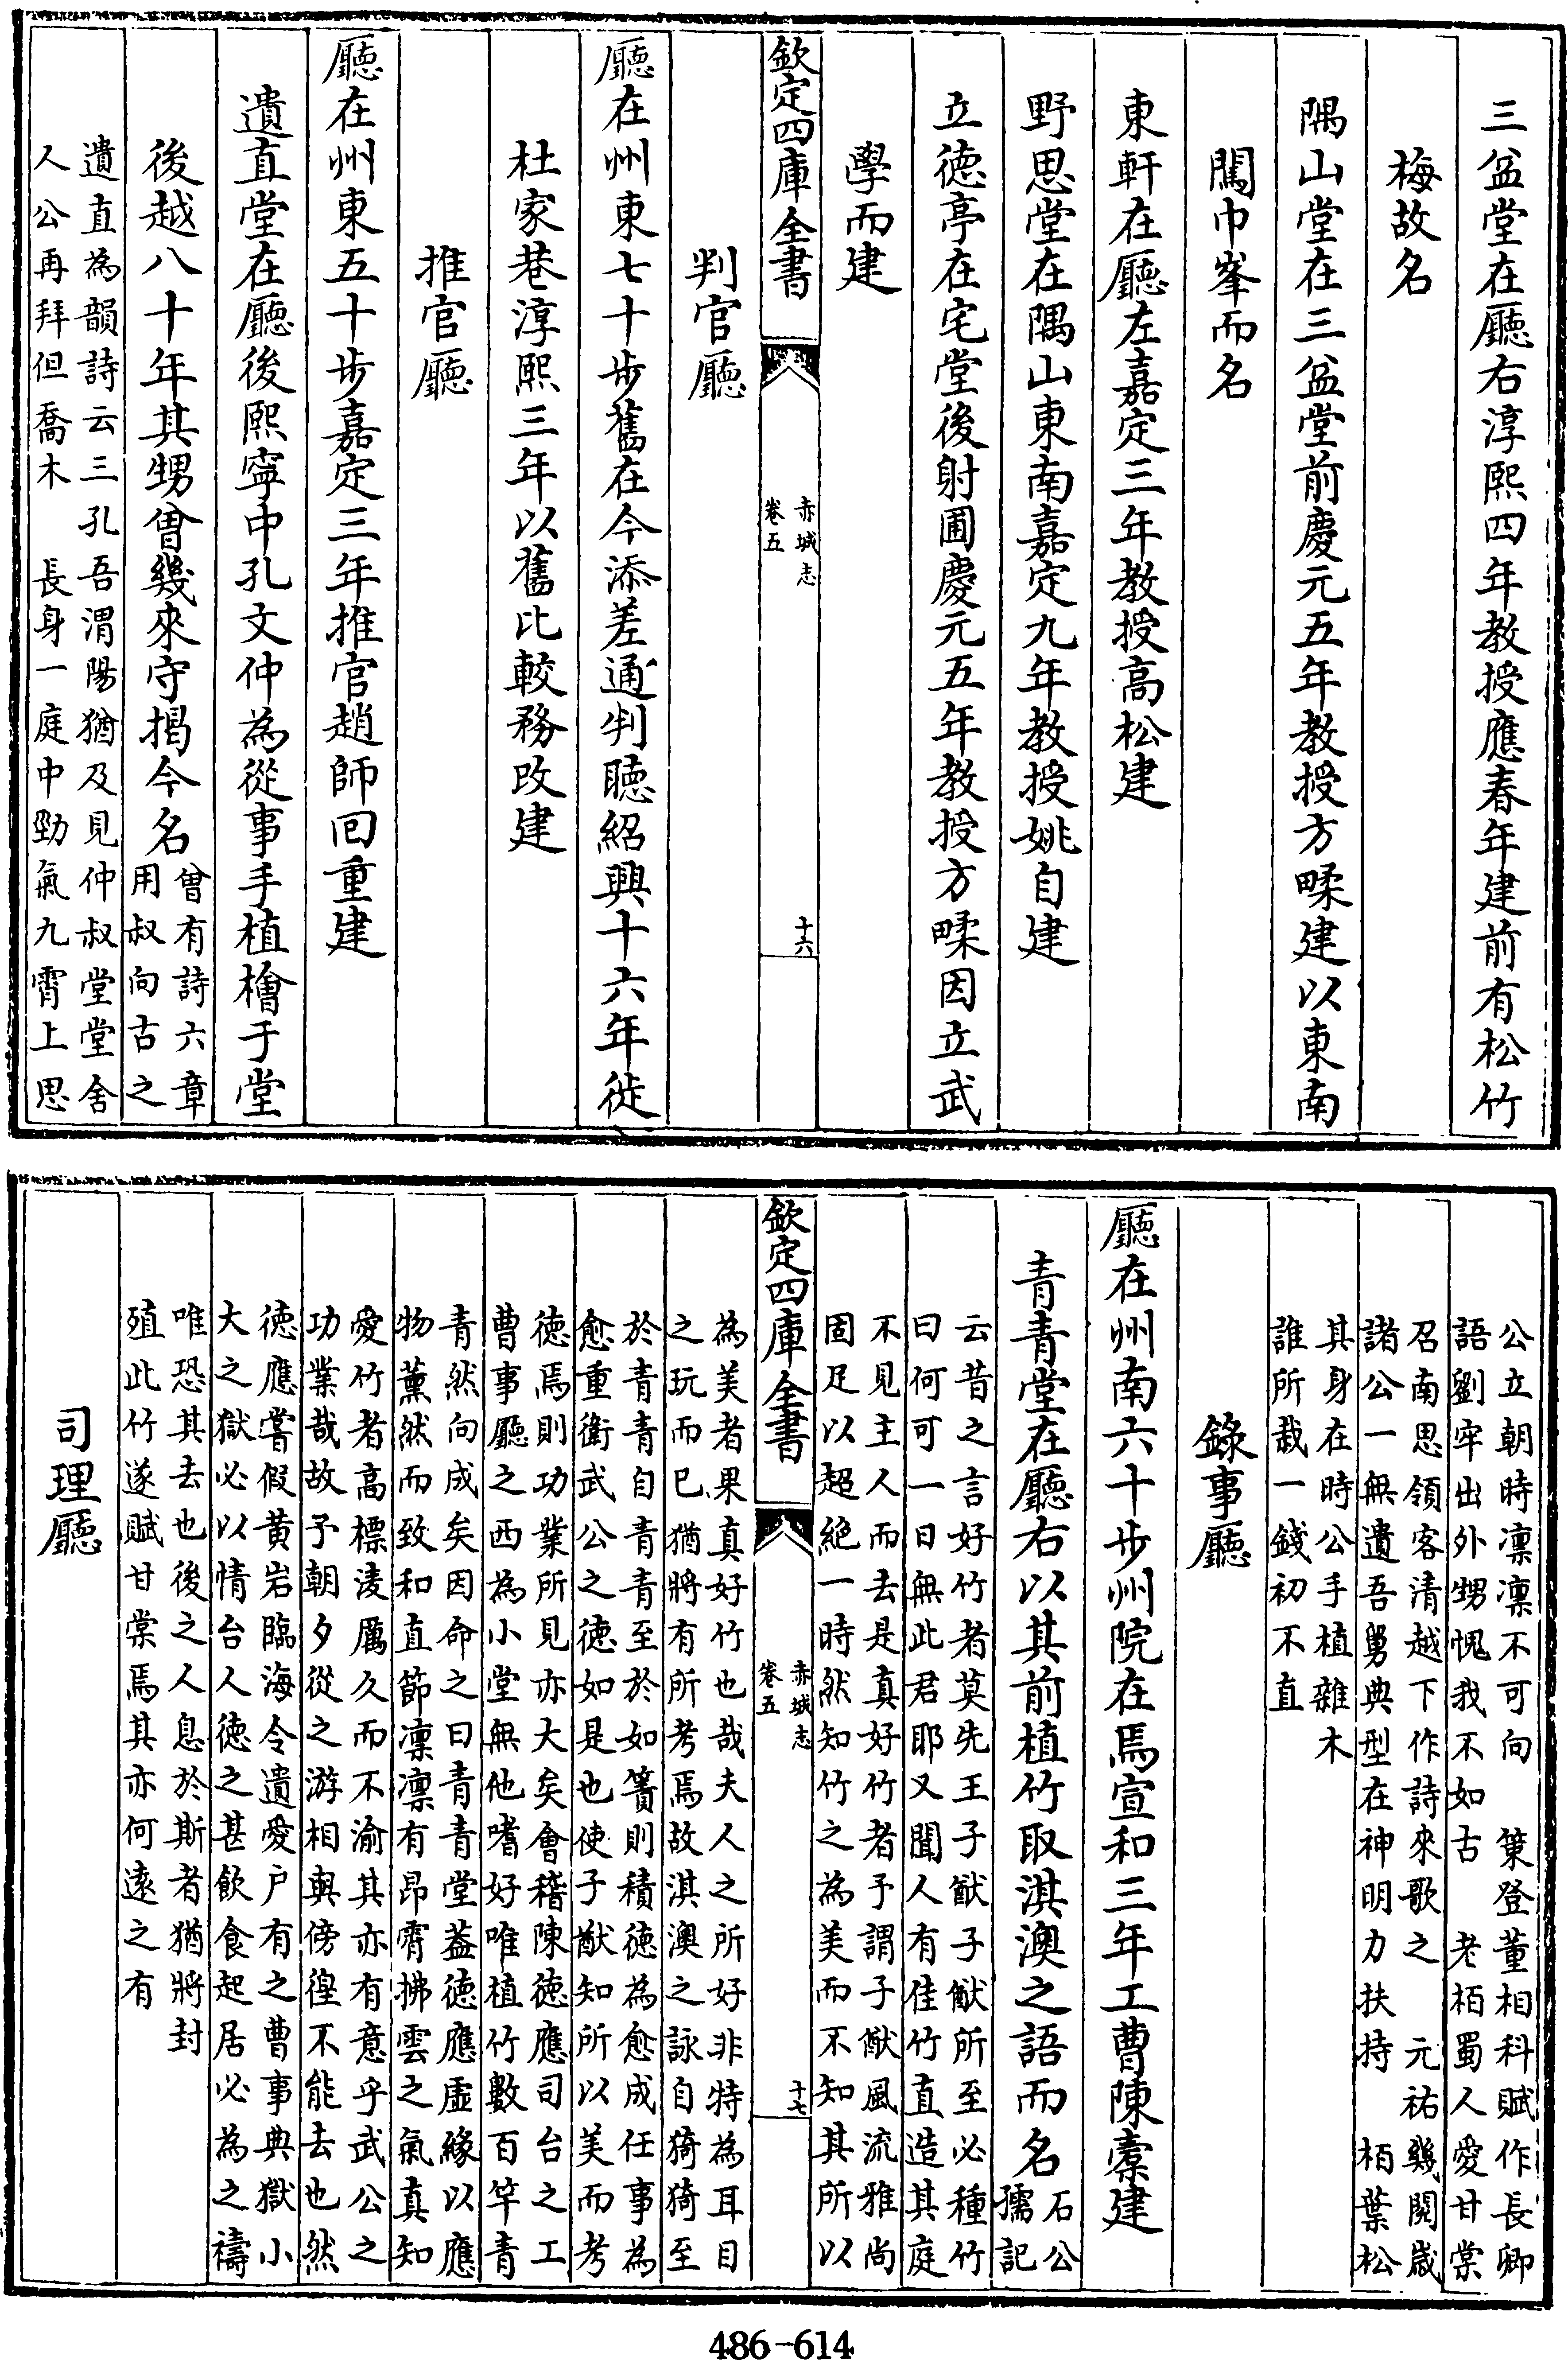 三盆堂在廳右淳熙四年教授應春年建前有松竹
梅故名
隅山堂在三盆堂前慶元五年教授方㽥建以東南
闖巾峯而名
東軒在廳左嘉定三年教授高松建
野思堂在隅山東南嘉定九年教授姚自建
立徳亭在宅堂後射圃慶元五年教授方㽥因立武
學而建
欽定四庫全書
赤城志
卷五
十六
判官廳
廳在州東七十步舊在今添差通判聽紹興十六年徙
杜家巷淳熙三年以舊比較務改建
推官廳
廳在州東五十步嘉定三年推官趙師回重建
遺直堂在廳後熙寧中孔文仲為從事手植檜于堂
後越八十年其甥曾幾來守揭今名
曾有詩六章
用叔向古之
遺直為韻詩云三孔吾渭陽猶及見仲叔堂堂舍
人公再拜但喬木　長身一庭中勁氣九霄上思
公立朝時凛凛不可向　策登董相科賦作長卿
語劉牢出外甥愧我不如古　老栢蜀人愛甘棠
召南思領客清越下作詩來歌之　元祐幾閱嵗
諸公一無遺吾舅典型在神明力扶持　栢葉松
其身在時公手植雜木
誰所栽一錢初不直
錄事廳
廳在州南六十步州院在焉宣和三年工曹陳櫜建
青青堂在廳右以其前植竹取淇澳之語而名
石公
孺記
云昔之言好竹者莫先王子猷子猷所至必種竹
曰何可一日無此君耶又聞人有佳竹直造其庭
不見主人而去是真好竹者予謂子猷風流雅尚
固足以超絶一時然知竹之為美而不知其所以
欽定四庫全書
赤城志
卷五
十七
為美者果真好竹也哉夫人之所好非特為耳目
之玩而已猶將有所考焉故淇澳之詠自猗猗至
於青青自青青至於如簀則積徳為愈成任事為
愈重衛武公之徳如是也使子猷知所以美而考
徳焉則功業所見亦大矣會稽陳徳應司台之工
曹事廳之西為小堂無他嗜好唯植竹數百竿青
青然向成矣因命之曰青青堂葢徳應虛緣以應
物薰然而致和直節凛凛有昂霄拂雲之氣真知
愛竹者高標淩厲久而不渝其亦有意乎武公之
功業哉故予朝夕從之游相與傍徨不能去也然
徳應嘗假黄岩臨海令遺愛户有之曹事典獄小
大之獄必以情台人徳之甚飲食起居必為之禱
唯恐其去也後之人息於斯者猶將封
殖此竹遂賦甘棠焉其亦何逺之有
司理廳
486-614